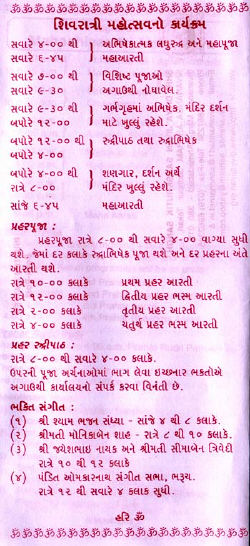 ૐ ૐ ૐ ૐ ૐ ૐ ૐ ૐ ૐ ૐ ૐ ૐ ૐ ૐ ૐ
શિવરાત્રી મહોત્સવનો કાર્યક્રમ
સવારે ૪-૦૦ થી અભિષેકાત્મક લઘુરુદ્ર અને મહાપૂજા
સવારે ૬-૪૫ મહાઆરતી
સવારે ૭-૦૦ થી વિશિષ્ટ પૂજાઓ
સવારે ૯-૩૦ અગાઉથી નોંધાવેલ.
સવારે ૯-૩૦ ગર્ભગૃહમાં અભિષેક, મંદિર દર્શન
બપોરે ૧૨-૦૦ માટે ખુલ્લું રહેશે.
બપોરે ૧૨-૦૦ થી રુદ્રીપાઠ તથા રુદ્રાભિષેક
બપોરે ૪-૦૦
બપોરે ૪-૦૦ થી શણગાર, દર્શન અર્થે
રાત્રે ૮-૦૦ મંદિર ખુલ્લું રહેશે.
સાંજે ૬-૪૫ મહાઆરતી
પ્રહરપૂજા :
પ્રહરપૂજા રાત્રે ૮-૦૦ થી સવારે ૪-૦૦ વાગ્યા સુધી
થશે. જેમાં દરેક કલાકે રુદ્રાભિષેક પૂજા થશે અને દર પ્રહરના અંતે
આરતી થશે.
રાત્રે ૧૦-૦૦ કલાકે પ્રથમ પ્રહર આરતી
રાત્રે ૧૨-૦૦ કલાકે દ્વિતીય પ્રહર ભસ્મ આરતી
રાત્રે ૨-૦૦ કલાકે તૃતીય પ્રહર આરતી
રાત્રે ૪-૦૦ કલાકે ચતુર્થ પ્રહર ભસ્મ આરતી
પ્રહર રુદ્રીપાઠ :
રાત્રે ૮-૦૦ થી સવારે ૪-૦૦ કલાકે.
ઉપરની પૂજા અર્ચનાઓમાં ભાગ લેવા ઇચ્છનાર ભક્તોએ
અગાઉથી કાર્યાલયનો સંપર્ક કરવા વિનંતી છે.
ભક્તિ સંગીત :
(૧) શ્રી શ્યામ ભજન સંધ્યા - સાંજે ૪ થી ૮ કલાકે.
(૨) શ્રીમતી મોનિકાબેન શાહ - રાત્રે ૮ થી ૧૦ કલાકે.
(૩) શ્રી જયેશભાઇ નાયક અને શ્રીમતી સીમાબેન ત્રિવેદી
રાત્રે ૧૦ થી ૧૨ કલાકે
(૪) પંડિત ઓમકારનાથ સંગીત સભા, ભરૂચ.
રાત્રે ૧૨ થી સવારે ૪ કલાક સુધી.
હરિ ૐ
ૐ ૐ ૐ ૐ ૐ ૐ ૐ ૐ ૐ ૐ ૐ ૐ ૐ ૐ ૐ